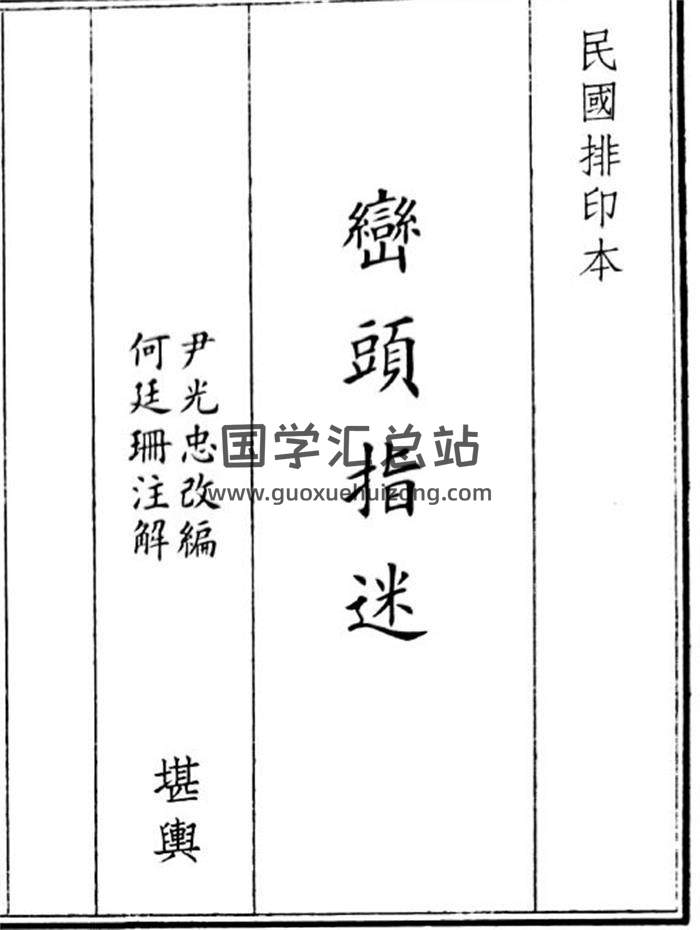 民國排印本
巒頭指迷
尹光忠改編
何廷珊注解
堪輿
国学汇总站
www.guoxuehuizong.com